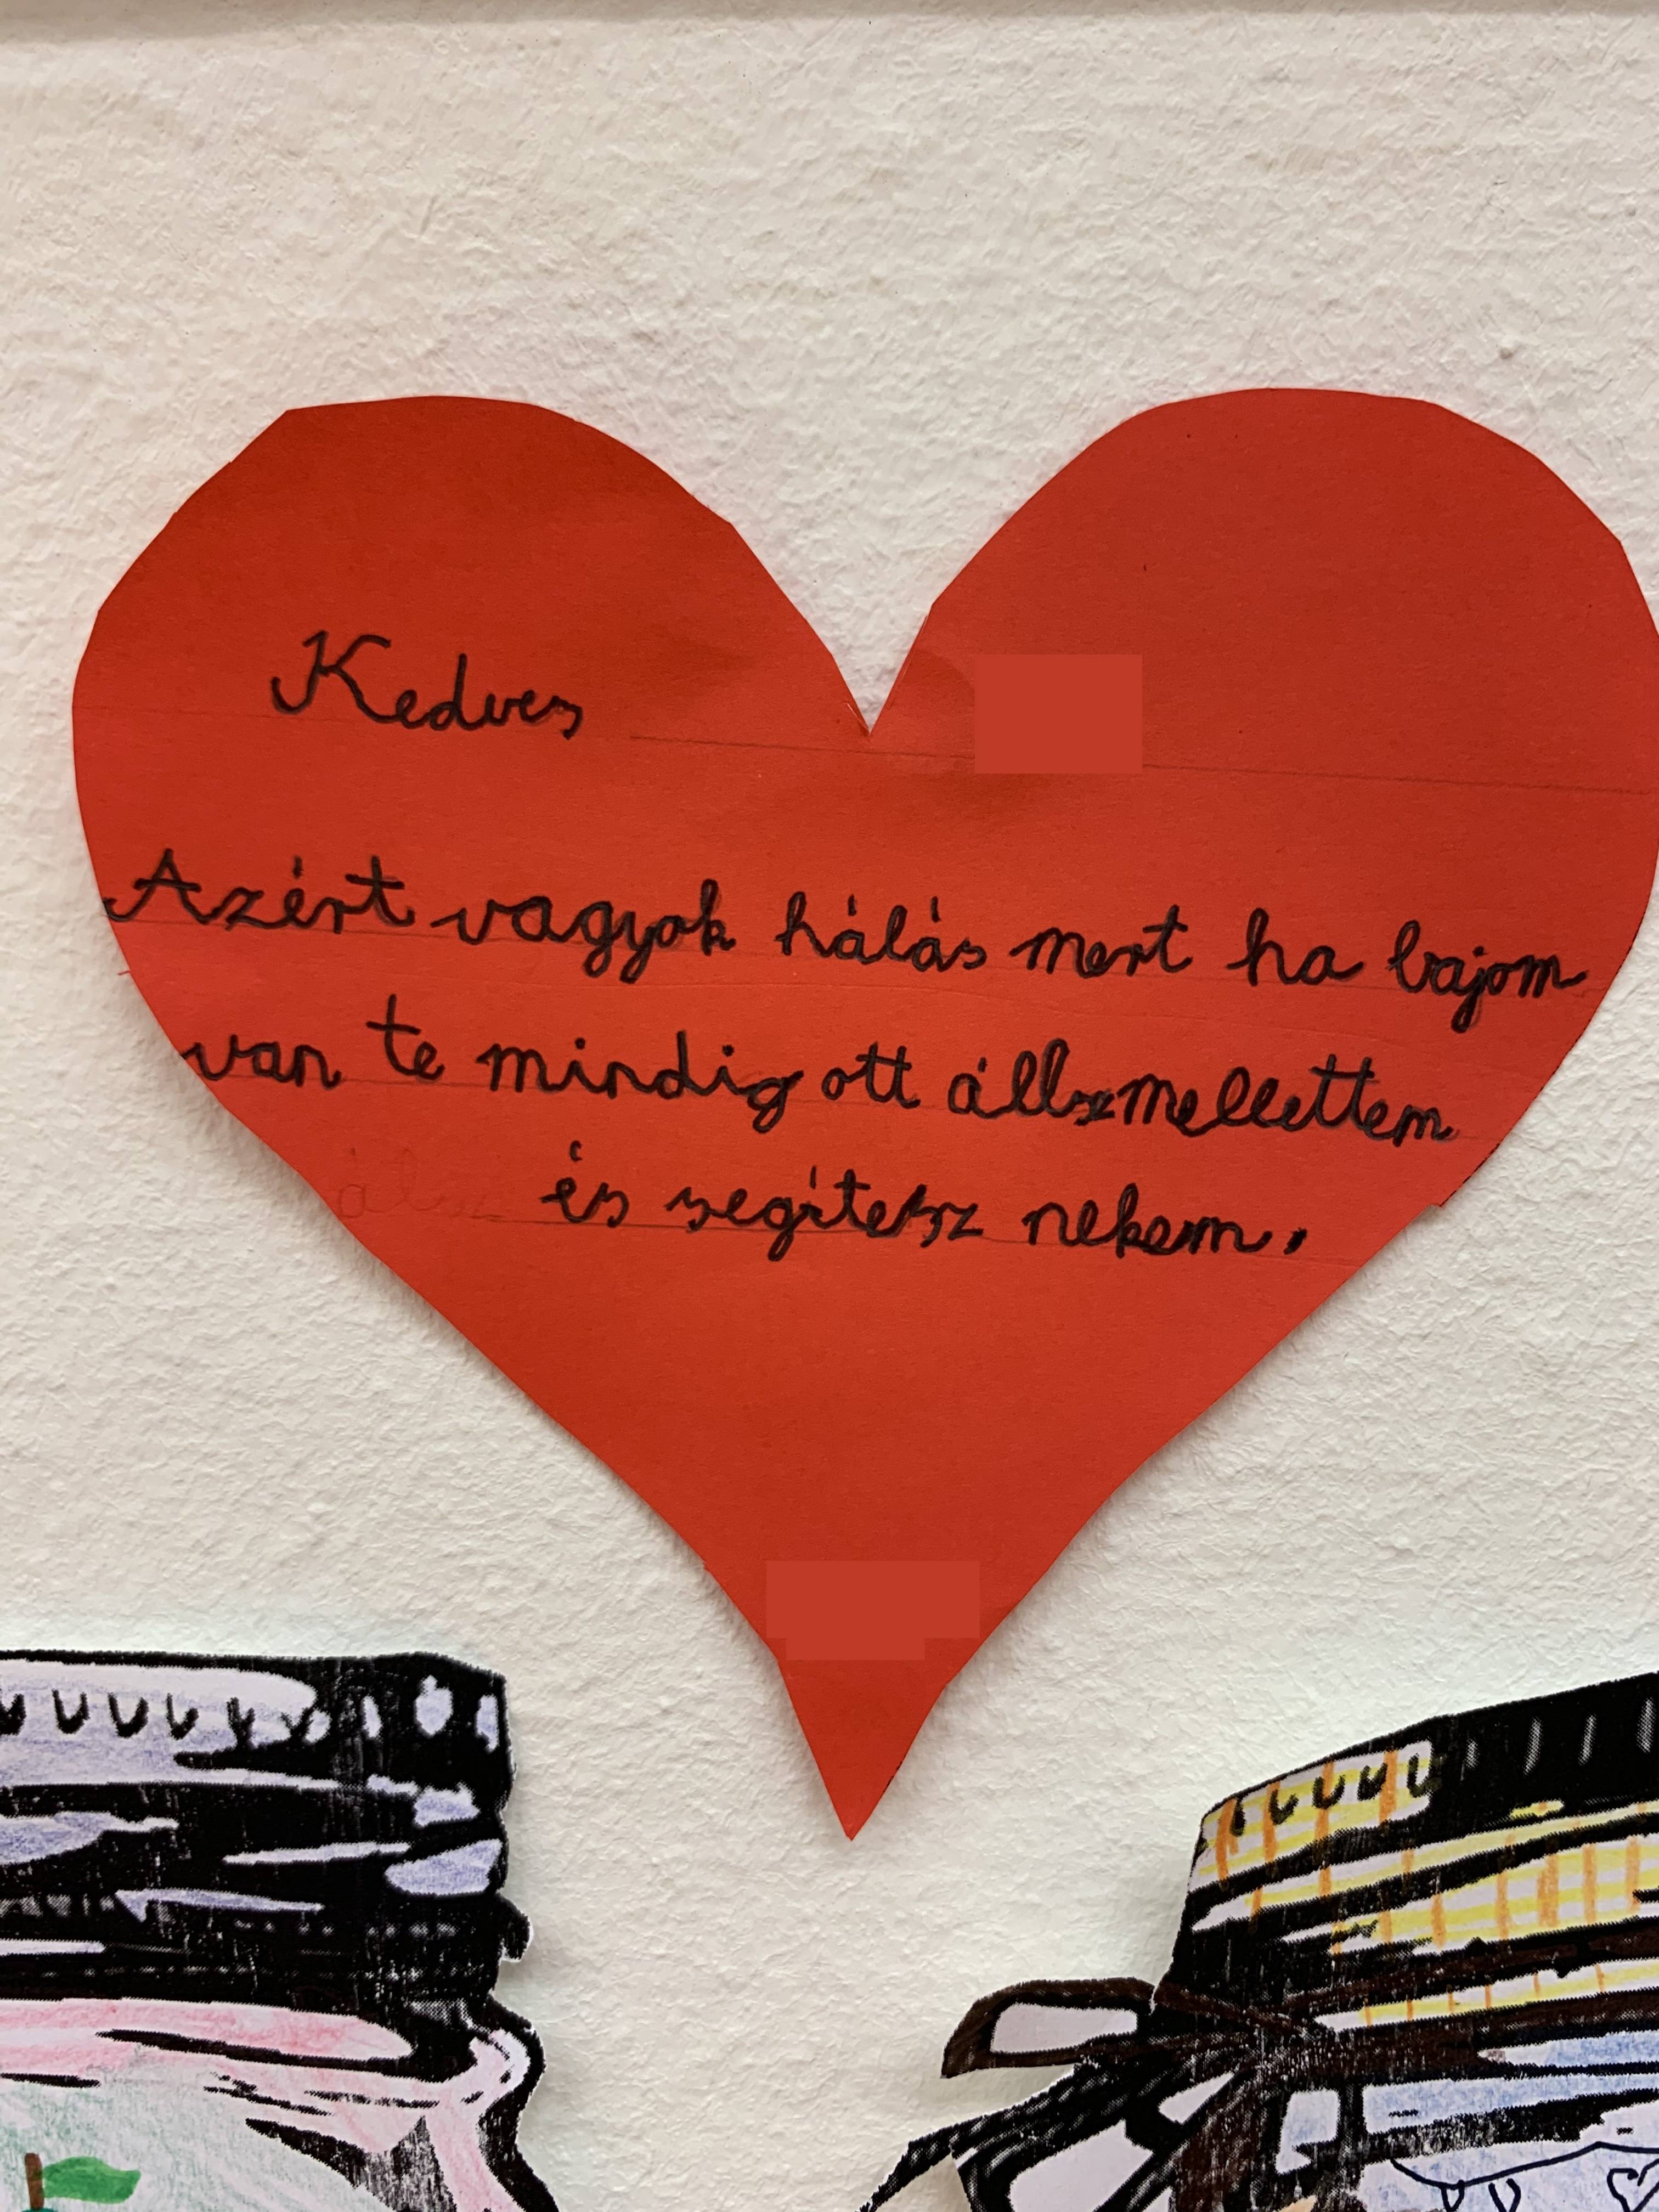 Kedves
Azért vagyok hálás mert ha bajom
van te mindig ott állsz mellettem
és segítesz nekem.